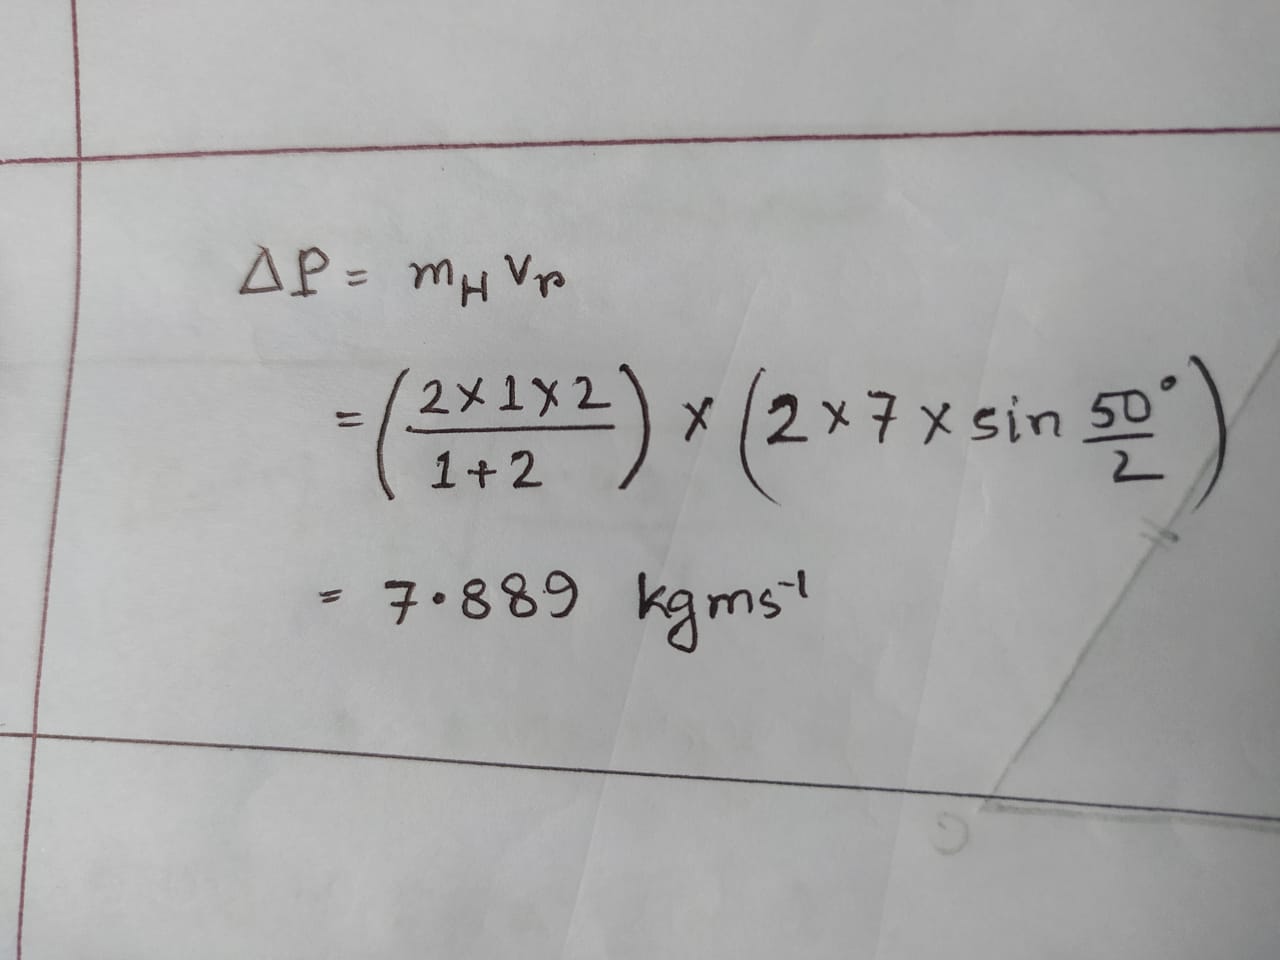 ΔP = m_H v_r
= (2×1×2 / 1+2) × (2×7×sin 50°/2)
= 7.889 kgms⁻¹